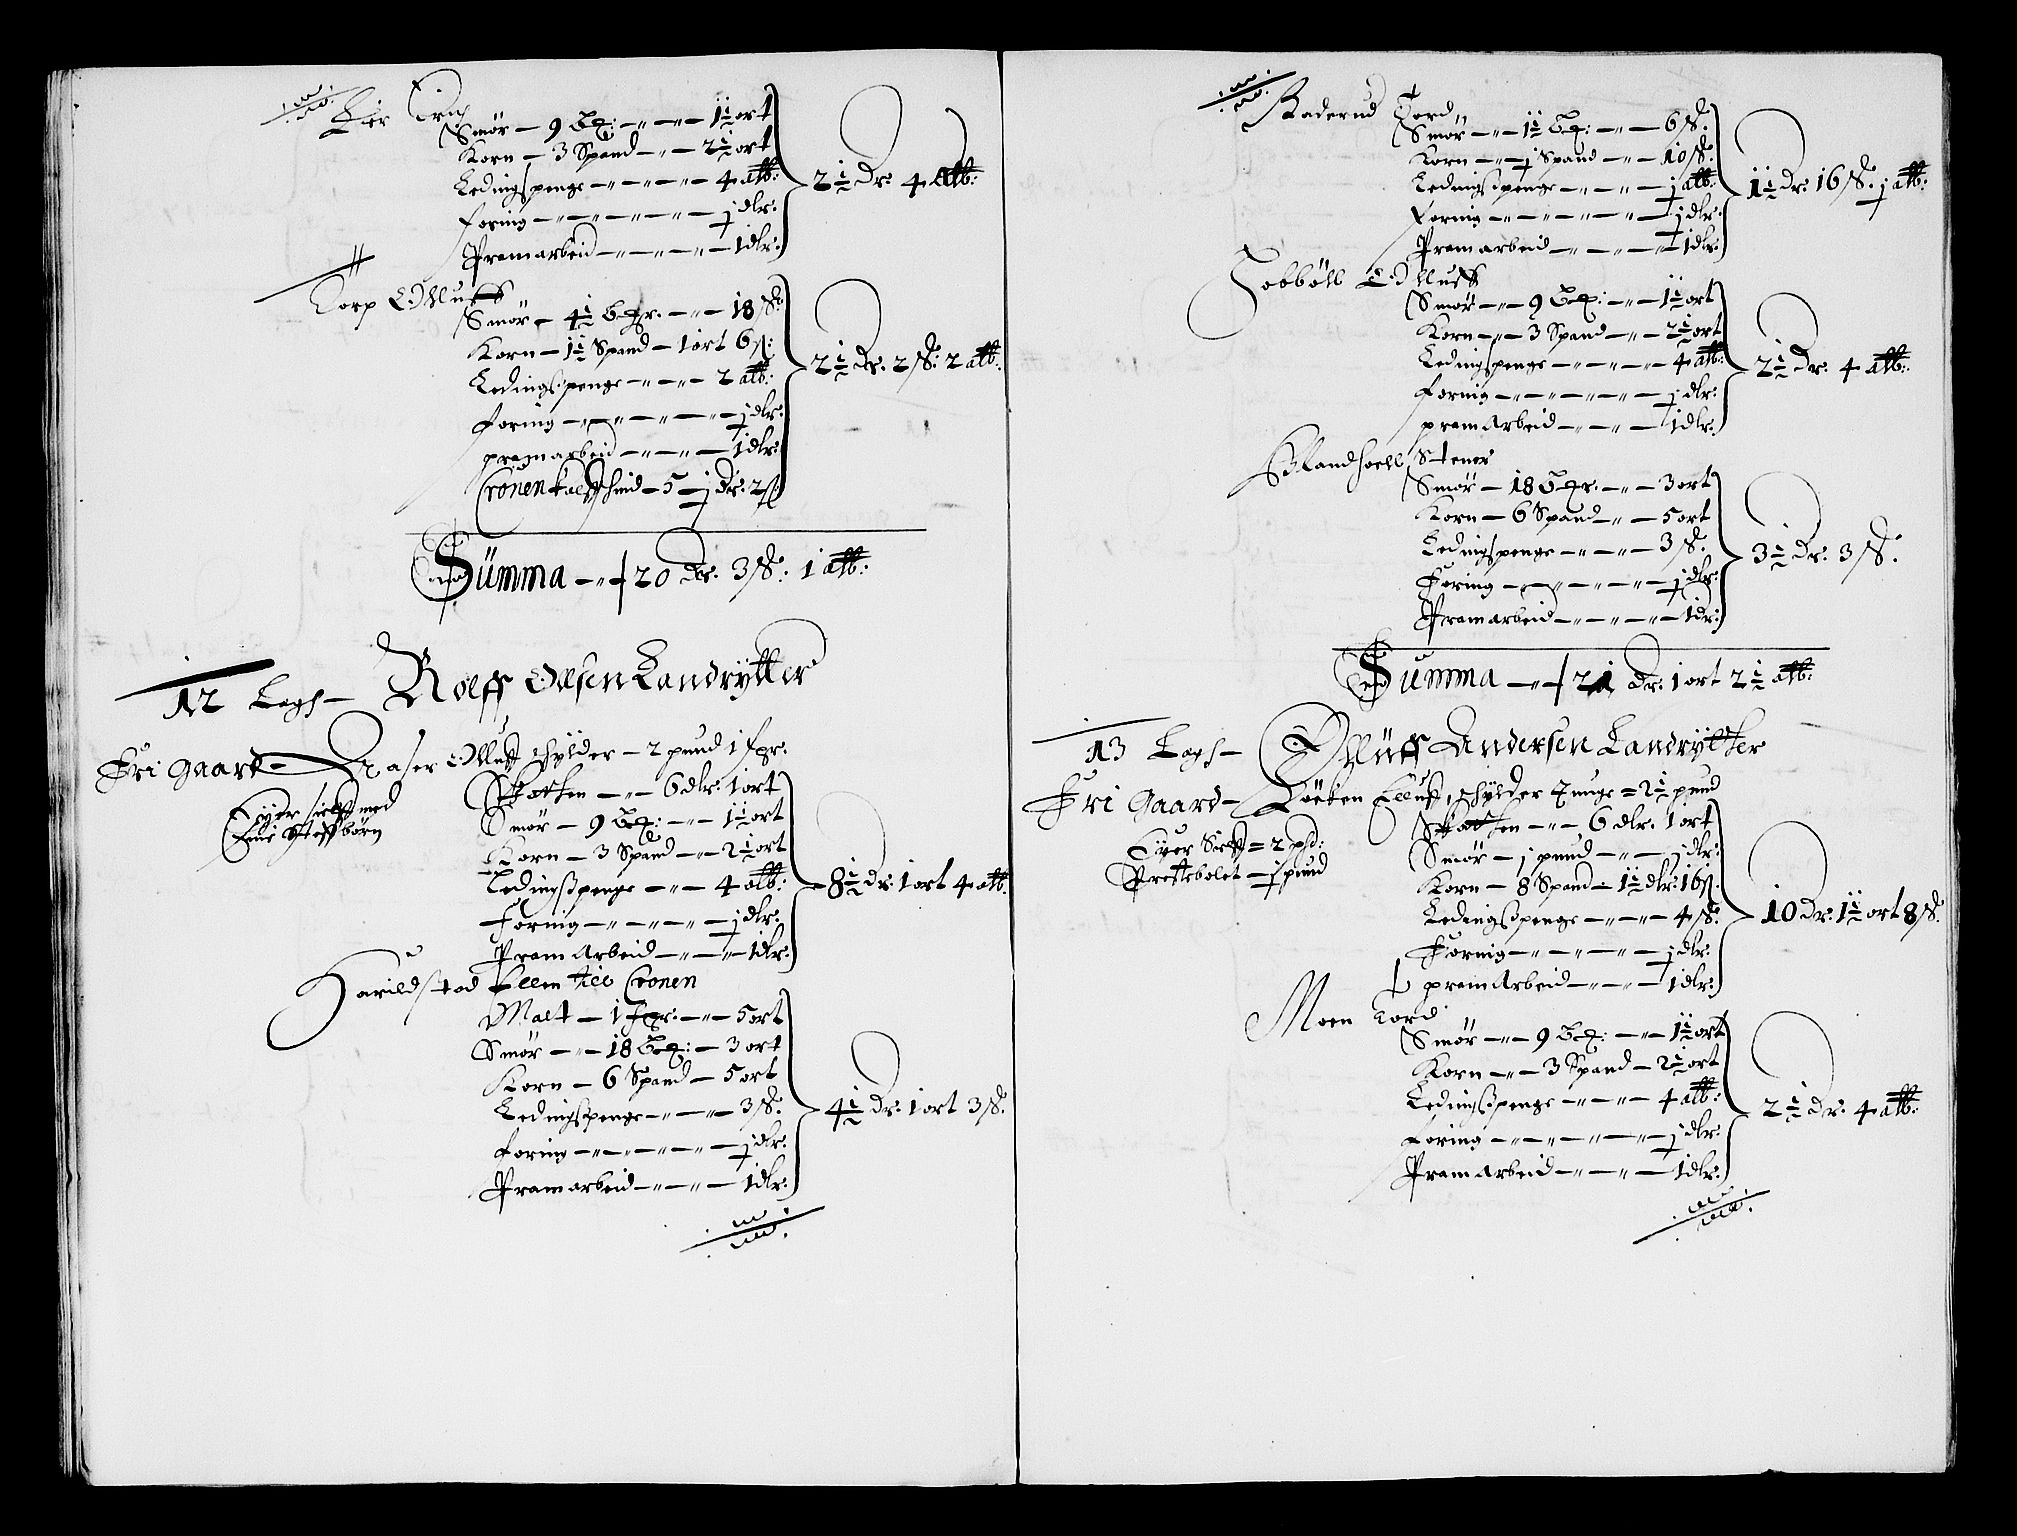 Lier Erich
Smør — 9 — 1½ ort
Korn — 3 Spand — 2½ ort
Ledingspenge — 4 alb:
Foring — j dlr:
Pramarbeid — 1 dlr:
2½ Dr. 4 alb:
Torp Olluff
Smør — 4½ — 18 ß
Korn — 1½ Spand — 1 ort 6 ß:
Ledingspenge — 2 alb:
Foring — j dlr:
pramarbeid — 1 dlr:
Cronen kalffschind — 5 — j Dr: 2 ß
2½ Dr. 2 ß: 2 alb:
Summa — 20 Dr. 3 ß: 1 alb:
12 Legh — Rolff Olsen Landrytter
Fri Gaard — Aaser Olluff schylder — 2 pund 1 fgr:
Eyer sielff med
sine Steffbörn
Skatten — 6 dlr. 1 ort
Smør — 9 — 1½ ort
Korn — 3 Spand — 2½ ort
Ledingspenge — 4 alb:
Foring — j dlr:
Pram Arbeid — 1 dlr:
8½ Dr. 1 ort 4 alb:
Harildstad Ellen till Cronen
Malt — 1 fgr: — 5 ort
Smør — 18 — 3 ort
Korn — 6 Spand — 5 ort
Ledingspenge — 3 ß.
Foring — j dlr:
Pramarbeid — 1 dlr:
4½ Dr: 1 ort 3 ß.
Raderud Tord
Smør — 1½ — 6 ß.
Korn — j Spand — 10 ß.
Ledingspenge — j alb:
Foring — j dlr:
Pramarbeid — 1 dlr:
1½ Dr. 16 ß. j alb:
Olluff
Smør — 9 — 1½ ort
Korn — 3 Spand — 2½ ort
Ledingspenge — 4 alb:
Foring — j dlr:
pram Arbeid — 1 dlr:
2½ Dr. 4 alb:
Stener
Smør — 18 — 3 ort
Korn — 6 Spand — 5 ort
Ledingspenge — 3 ß.
Foring — j dlr:
Pramarbeid — 1 dr:
3½ Dr. 3 ß.
Summa — 21 Dr: 1 ort 2½ alb:
13 Legh — Olluff Andersen Landrytter
Fri Gaard — Löcken Elluff, schylder — 2½ pund
Eyer Sielff = 2 pd:
Prestebolet — j pund
Skatten — 6 dlr. 1 ort
Smør — j pund — j dlr:
Korn — 8 Spand — 1½ dlr: 16 ß.
Ledingspenge — 4 ß:
Foring — j dlr:
pram Arbeid — 1 dlr:
10 Dr: 1½ ort 8 ß.
Moen Tord
Smør — 9 — 1½ ort
Korn — 3 Spand — 2½ ort
Ledingspenge — 4 alb:
Foring — j dlr:
Pram Arbeid — 1 dlr:
2½ Dr. 4 alb: